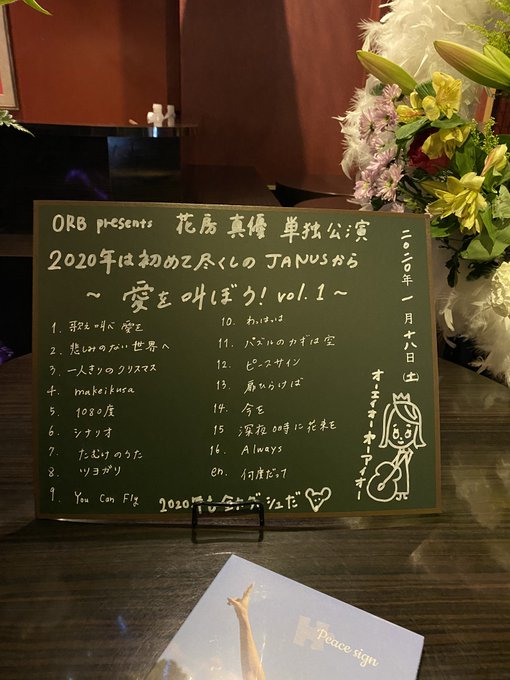 ORB presents 花房 真優 単独公演
2020年は初めて尽くしの JANUSから
～ 愛を叫ぼう! vol.1 ～
二〇二〇年 一月十八日(土)
1. 歌え叫べ 愛を
2. 悲しみのない世界へ
3. 一人きりのクリスマス
4. makeikusa
5. 1080度
6. シナリオ
7. たむけのうた
8. ツヨガリ
9. You Can Fly
10. わっはっは
11. パズルのカギは空
12. ピースサイン
13. 扉ひらけば
14. 今を
15. 深夜00時に花束を
16. Always
en. 何度だって
オーエィオーオーアィオー
2020年も全力ダッシュだ
Peace sign